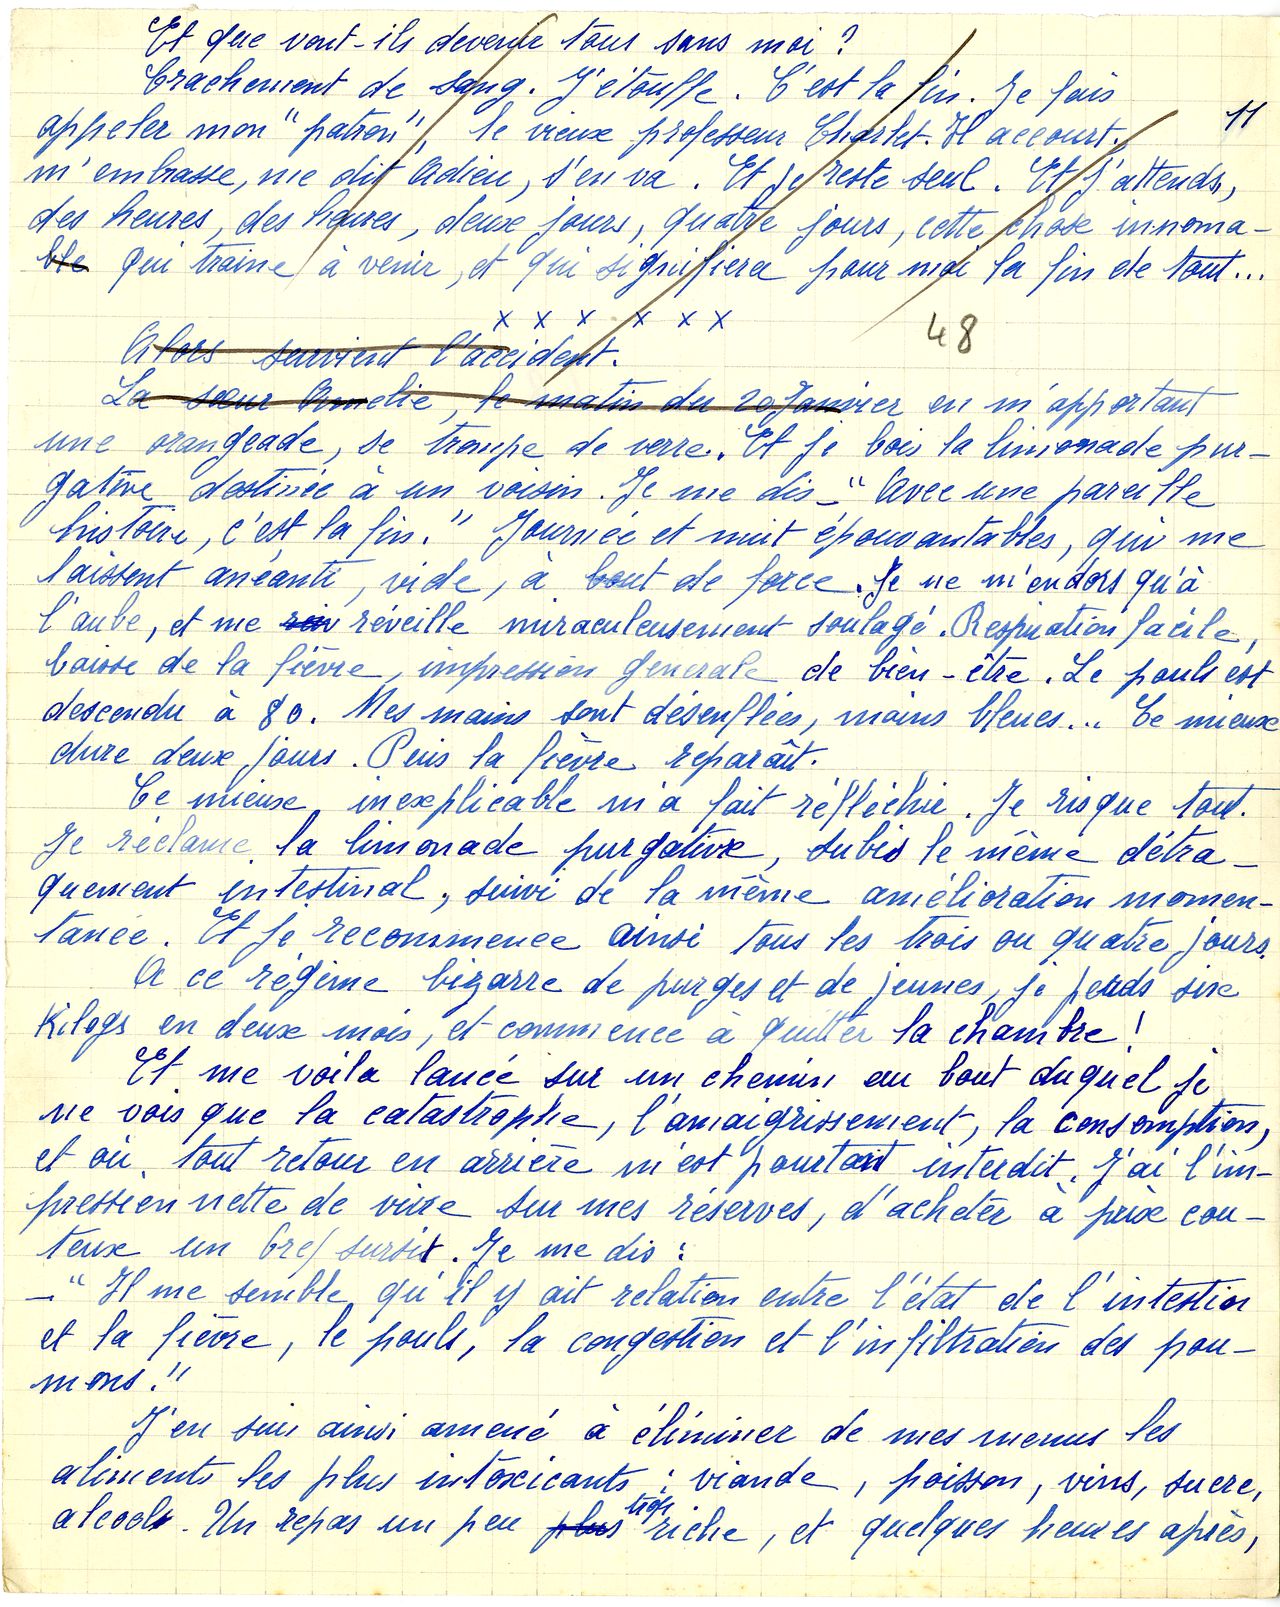 Et que vont-ils devenir tous sans moi ?
Crachement de sang. J'étouffe. C'est la fin. Je fais
11
appeler mon "patron", le vieux professeur Charlet. Il accourt,
m'embrasse, me dit Adieu, s'en va. Et je reste seul. Et j'attends,
des heures, des heures, deux jours, quatre jours, cette chose innoma-
ble qui traine à venir, et qui signifiera pour moi la fin de tout...
x x x x x x
48
Alors survient l'accident.
La sœur Amélie, le matin du 20 Janvier en m'apportant
une orangeade, se trompe de verre. Et je bois la limonade pur-
gative destinée à un voisin. Je me dis -" Avec une pareille
histoire, c'est la fin." Journée et nuit épouvantables, qui me
laissent anéanti, vide, à bout de force. Je ne m'endors qu'à
l'aube, et me réveille miraculeusement soulagé. Respiration facile,
baisse de la fièvre, impression générale de bien-être. Le pouls est
descendu à 80. Mes mains sont désenflées, moins bleues... Ce mieux
dure deux jours. Puis la fièvre reparaît.
Ce mieux inexplicable m'a fait réfléchir. Je risque tout.
Je réclame la limonade purgative, subis le même détra-
quement intestinal, suivi de la même amélioration momen-
tanée. Et je recommence ainsi tous les trois ou quatre jours.
A ce régime bizarre de purges et de jeunes, je perds six
Kilogs en deux mois, et commence à quitter la chambre !
Et me voila lancé sur un chemin au bout duquel je
ne vois que la catastrophe, l'amaigrissement, la consomption,
et où tout retour en arrière m'est pourtant interdit. J'ai l'im-
pression nette de vivre sur mes réserves, d'acheter à prix cou-
teux un bref sursis. Je me dis :
-" Il me semble qu'il y ait relation entre l'état de l'intestin
et la fièvre, le pouls, la congestion et l'infiltration des pou-
mons."
J'en suis ainsi amené à éliminer de mes menus les
aliments les plus intoxicants : viande, poisson, vins, sucre,
alcools. Un repas un peu plus trop riche, et quelques heures après,